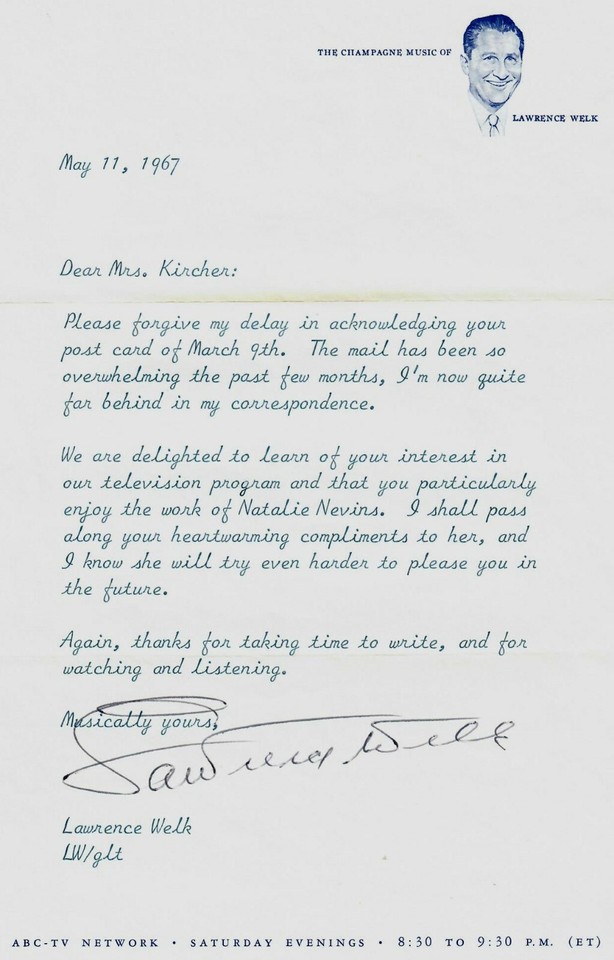 THE CHAMPAGNE MUSIC OF
LAWRENCE WELK
May 11, 1967
Dear Mrs. Kircher:
Please forgive my delay in acknowledging your
post card of March 9th. The mail has been so
overwhelming the past few months, I'm now quite
far behind in my correspondence.
We are delighted to learn of your interest in
our television program and that you particularly
enjoy the work of Natalie Nevins. I shall pass
along your heartwarming compliments to her, and
I know she will try even harder to please you in
the future.
Again, thanks for taking time to write, and for
watching and listening.
Musically yours,
Lawrence Welk
Lawrence Welk
LW/glt
ABC-TV NETWORK • SATURDAY EVENINGS • 8:30 TO 9:30 P.M. (ET)